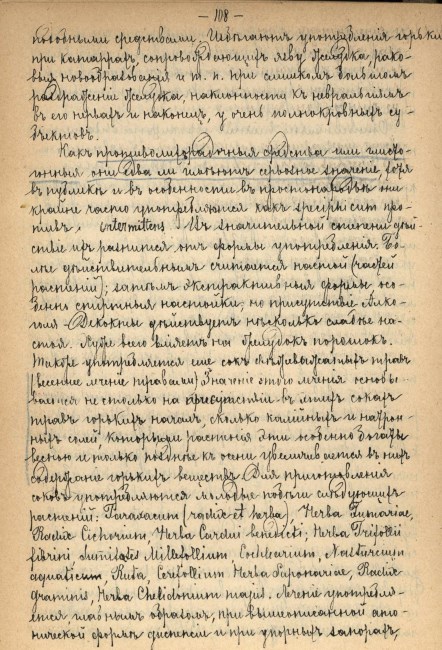 — 108 —
подобными средствами. Избѣгаютъ употребленія горькихъ
при катаррахъ, сопровождающихъ язву желудка, рако-
выя новообразованія и т. п. при слишкомъ большомъ
раздраженіи желудка, наклонности къ невральгіямъ
въ его нервахъ и наконецъ, у очень полнокровныхъ су-
бъектовъ.
Какъ противолихорадочныя средства или глисто-
гонныя они едва ли имѣютъ серьозное значеніе, хотя
въ публикѣ и въ особенности въ простонародьѣ они
крайне часто употребляются какъ specificum про-
тивъ intermittens. Въ значительной степени дѣй-
ствіе ихъ разнится отъ формы употребленія. Бо-
лѣе дѣйствительнымъ считается настой (частей
растеній); затѣмъ экстрактивныя формы, осо-
бенно спиртныя настойки, но присутствіе алко-
голя Декокты дѣйствуютъ нѣсколько слабѣе на-
стоя. Хуже всего вліяетъ на желудокъ порошокъ.
Также употребляется еще сокъ свѣжевыжатыхъ травъ
(весеннее леченіе травами) Значеніе этого леченія основы-
вается не столько на присутствіи въ этихъ сокахъ
травъ горькихъ началъ, сколько калійныхъ и натрон-
ныхъ солей которыми растенія эти особенно богаты
весною и только позднѣе къ осени увеличивается въ нихъ
содержаніе горькихъ веществъ. Для приготовленія
соковъ употребляются молодые побѣги слѣдующихъ
растеній: Taraxacum (radix et herba), Herba Fumariae,
Radix Cichorium, Herba Cardui benedicti; Herba Trifolii
fibrini Millefollium, Cochlearium, Nasturcium
aquaticum, Ruta, Cerefollium Herba Saponariae, Radix
graminis, Herba Chelidonium majus. Леченіе употребля-
ется, главнымъ образомъ, при вышеописанной ато-
нической формѣ диспепсіи и при упорныхъ запорахъ,